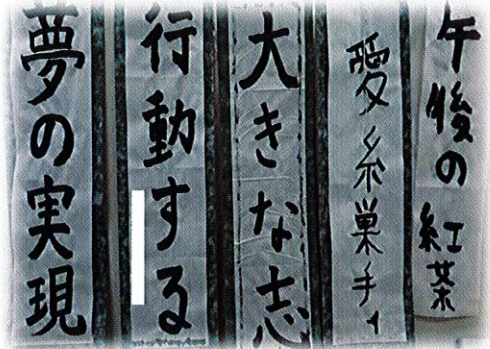 午後の紅茶
愛糸巣手ィ
大きな志
行動する
夢の実現